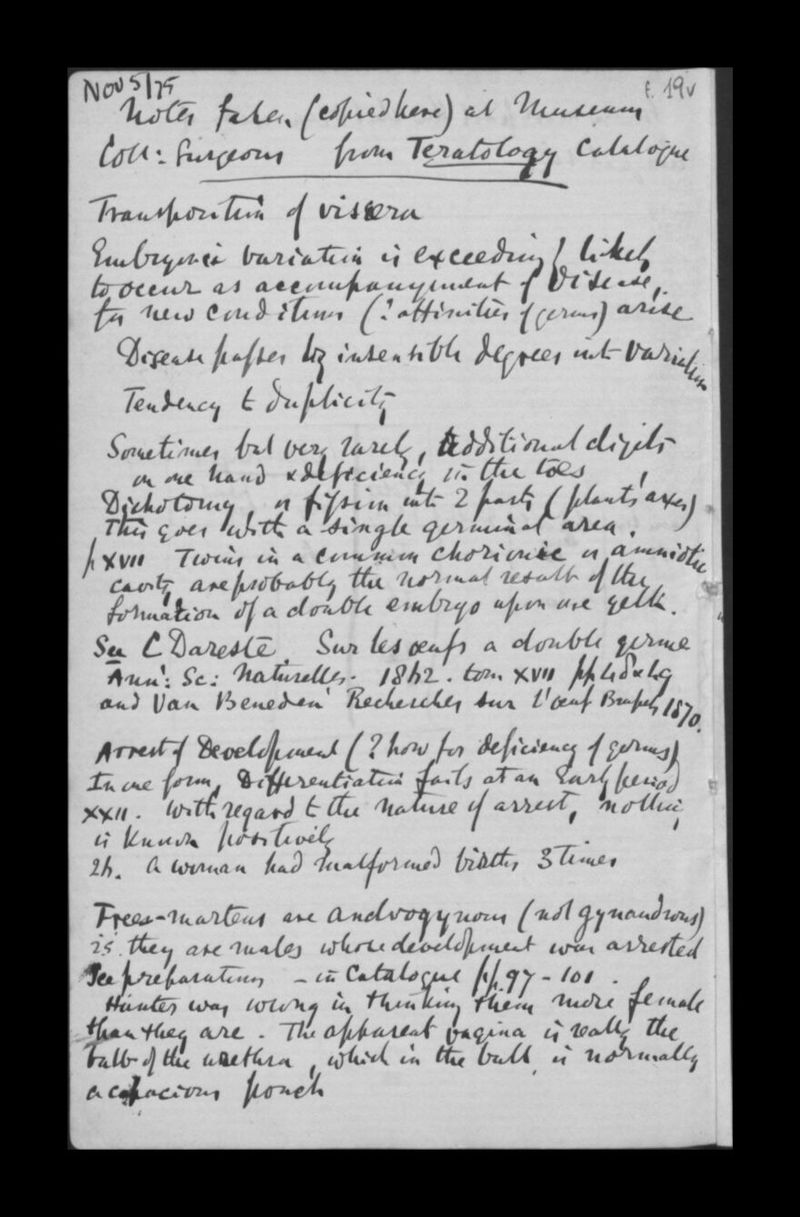 Nov 5/75
f. 19v
Notes taken (copied here) at Museum
Coll: Surgeons from Teratology Catalogue
Transposition of viscera
Embryonic variation is exceedingly likely
to occur as accompanyment of Disease,
for new conditions (? affinities of germs) arise
Disease passes by insensible degrees into variation
Tendency to duplicity
Sometimes but very rarely, additional digits
on one hand & deficiency in the toes
Dichotomy, or fission into 2 parts (plants' axes)
This goes with a single germinal area.
p XVII Twins in a common chorionic or amniotic
cavity are probably the normal result of the
formation of a double embryo upon one yelk.
See C Dareste. Sur les œufs a double germe
Ann: Sc: Naturelles. 1862. tom XVII pp
and Van Beneden Recherches sur l'œuf 1870.
Arrest of Development (? how for deficiency of germs)
In one form, Differentiation fails at an Early period
XXII. With regard to the nature of arrest, nothing
is known positively
26. A woman had malformed births 3 times
Free-martens are androgynous (not gynandrous)
is. they are males whose development was arrested
See preparations – in Catalogue pp. 97 – 101.
Hunter was wrong in thinking them more female
than they are. The apparent vagina is really the
bulb of the urethra, which in the bull is normally
a capacious pouch